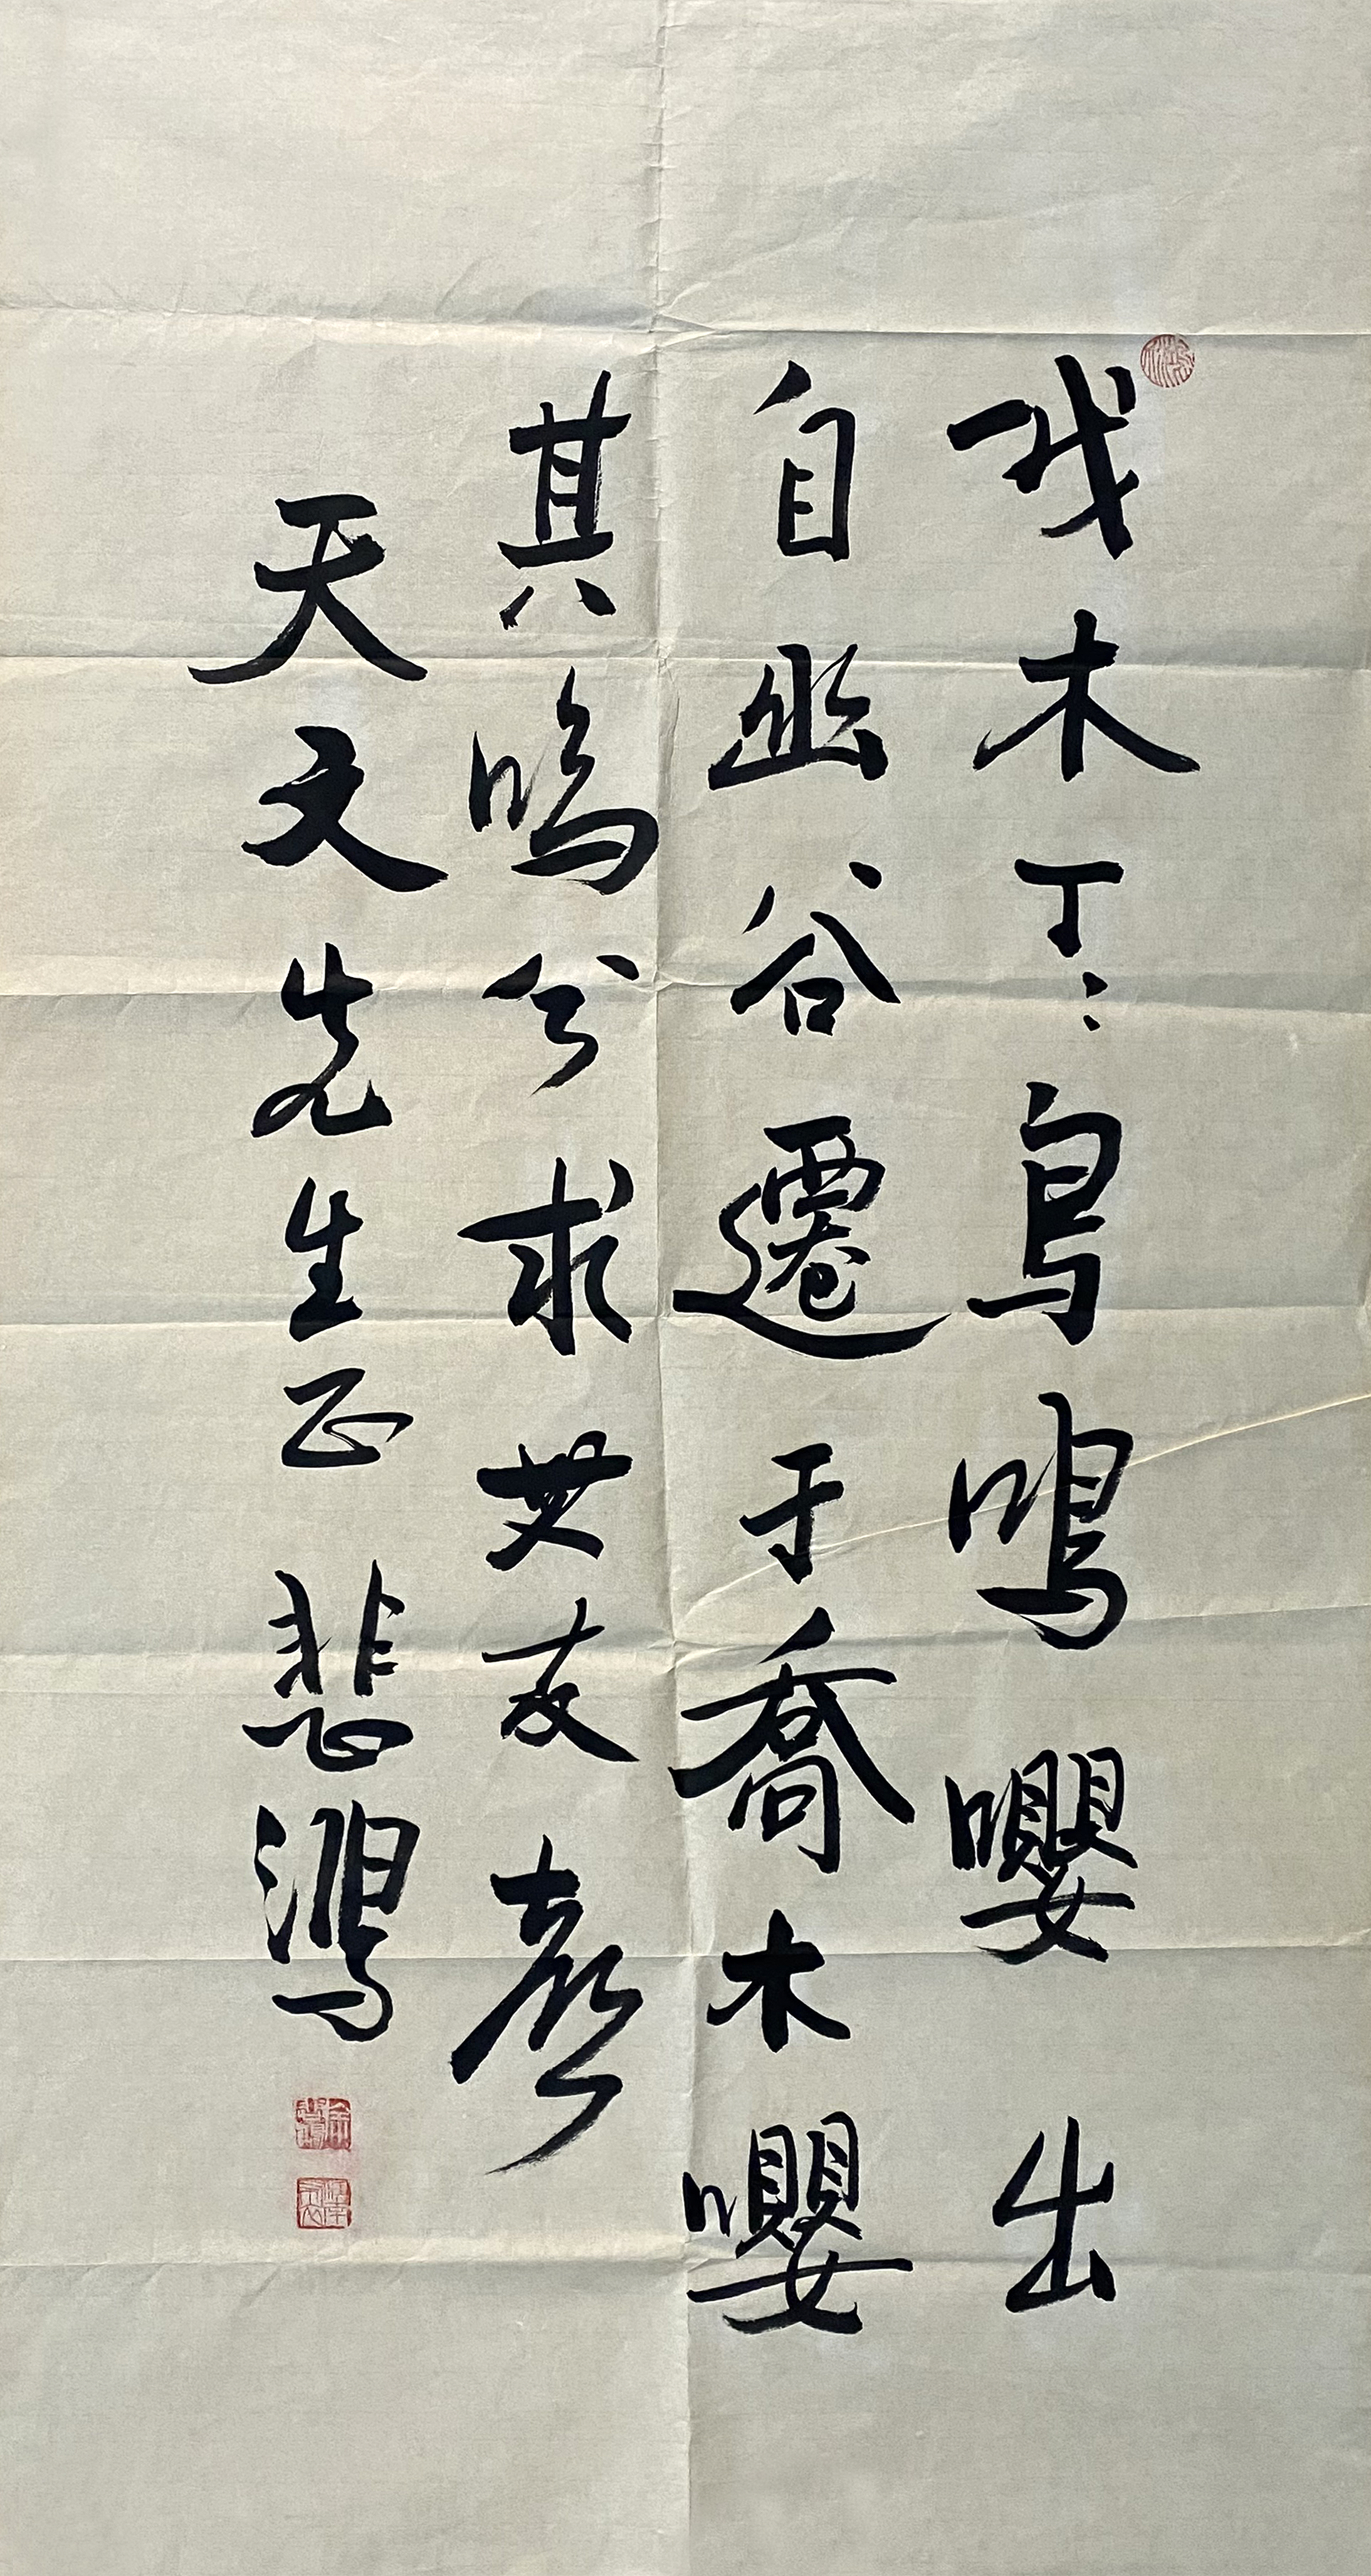 伐木丁：鳥鳴嚶出
自幽谷遷于喬木嚶
其鳴兮求其友聲
天文先生正 悲鴻